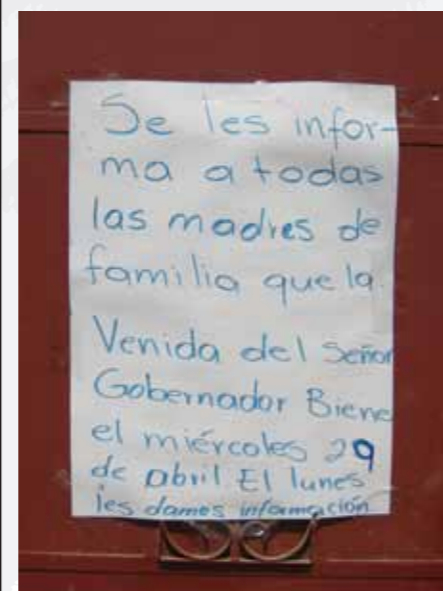 Se les infor-
ma a todas
las madres de
familia que la
Venida del Señor
Gobernador Biene
el miércoles 29
de abril El lunes
les damos información